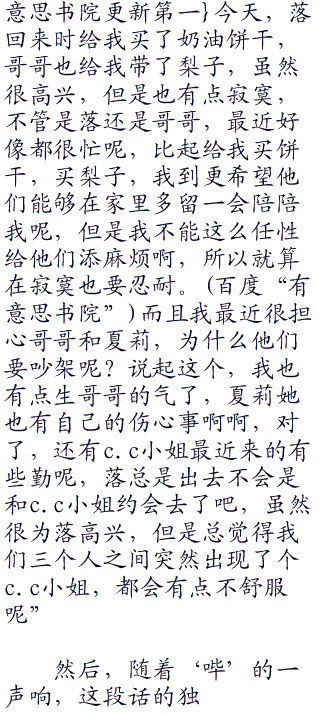 意思书院更新第一}今天，落
回来时给我买了奶油饼干，
哥哥也给我带了梨子，虽然
很高兴，但是也有点寂寞，
不管是落还是哥哥，最近好
像都很忙呢，比起给我买饼
干，买梨子，我到更希望他
们能够在家里多留一会陪陪
我呢，但是我不能这么任性
给他们添麻烦啊，所以就算
在寂寞也要忍耐。(百度“有
意思书院”)而且我最近很担
心哥哥和夏莉，为什么他们
要吵架呢？说起这个，我也
有点生哥哥的气了，夏莉她
也有自己的伤心事啊啊，对
了，还有c.c小姐最近来的有
些勤呢，落总是出去不会是
和c.c小姐约会去了吧，虽然
很为落高兴，但是总觉得我
们三个人之间突然出现了个
c.c小姐，都会有点不舒服
呢”
然后，随着‘哔’的一
声响，这段话的独